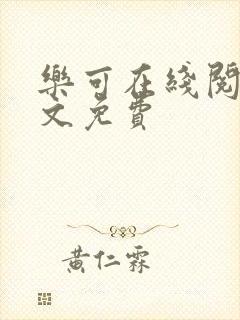 樂可在綫閱
文免費
黃仁霖